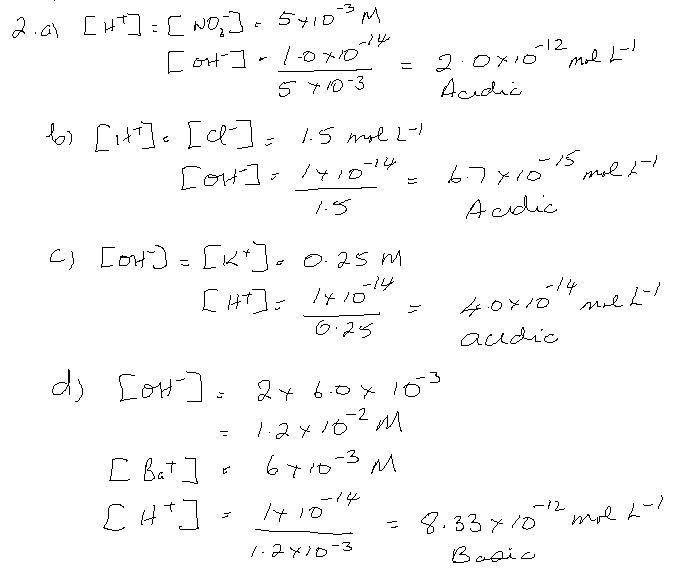 2.a) [H⁺] = [NO₃⁻] = 5×10⁻³ M
[OH⁻] = 1.0×10⁻¹⁴ / 5×10⁻³ = 2.0×10⁻¹² mol L⁻¹
Acidic
b) [H⁺] = [Cl⁻] = 1.5 mol L⁻¹
[OH⁻] = 1×10⁻¹⁴ / 1.5 = 6.7×10⁻¹⁵ mol L⁻¹
Acidic
c) [OH⁻] = [K⁺] = 0.25 M
[H⁺] = 1×10⁻¹⁴ / 0.25 = 4.0×10⁻¹⁴ mol L⁻¹
acidic
d) [OH⁻] = 2×6.0×10⁻³
= 1.2×10⁻² M
[Ba⁺] = 6×10⁻³ M
[H⁺] = 1×10⁻¹⁴ / 1.2×10⁻³ = 8.33×10⁻¹² mol L⁻¹
Basic